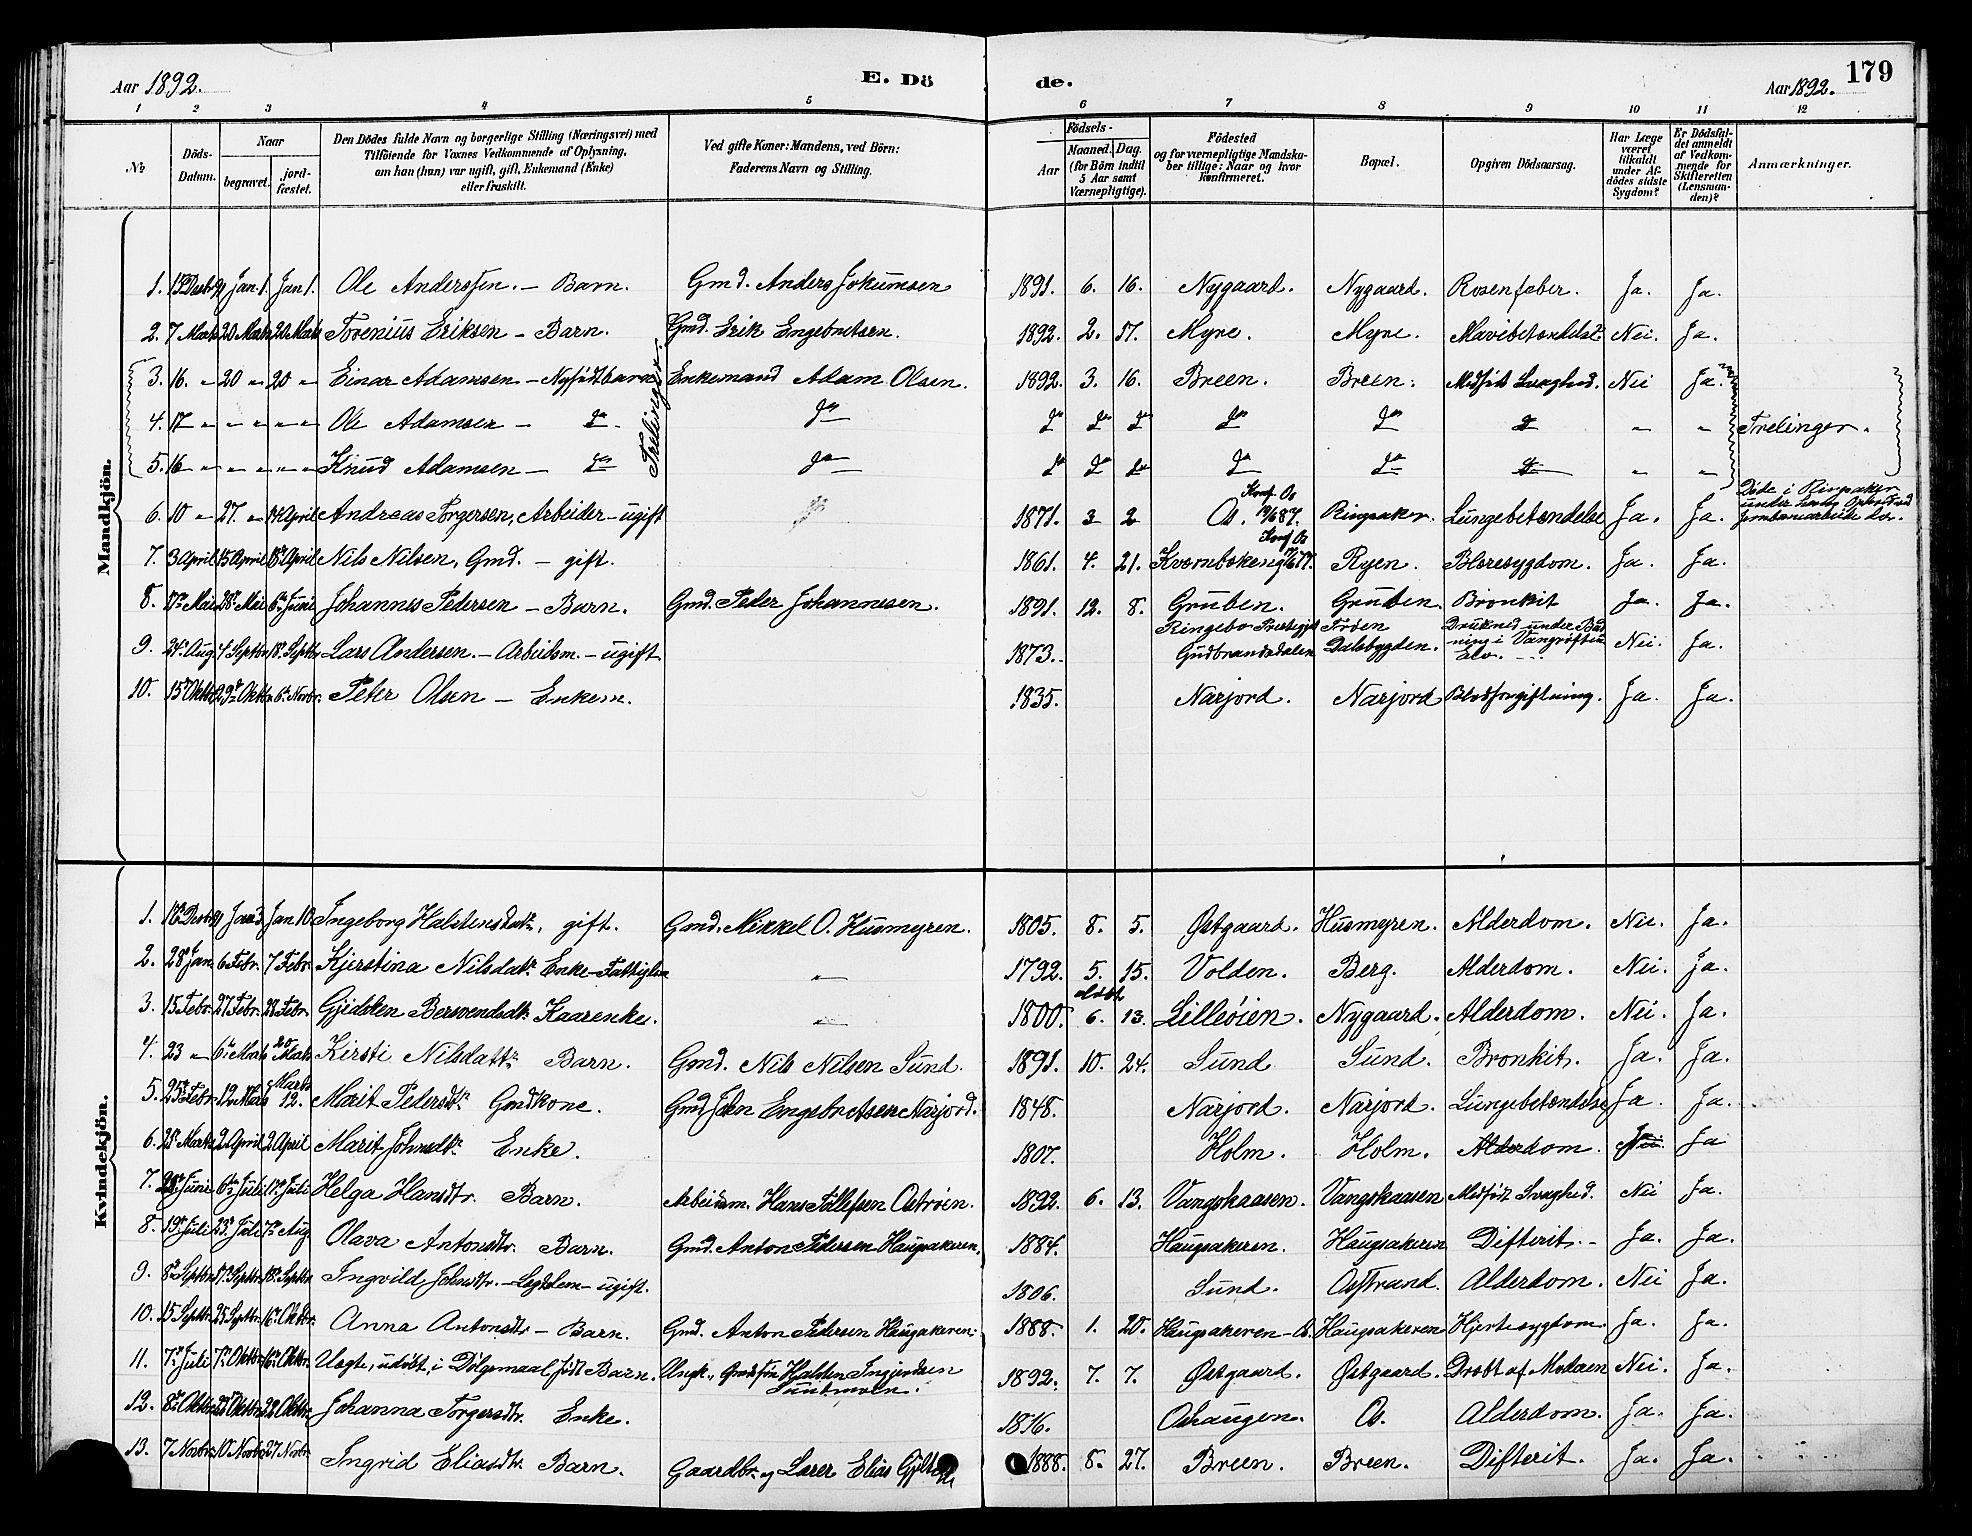 Aar 1892. E. Dö de. Aar 1892. 179
1 2 3 4 5 6 7 8 9 10 11 12
No
Döds-Datum.
Naar begravet. jordfæstet.
Den Dödes fulde Navn og borgerlige Stilling (Næringsvei) med
Tilföiende for Voxnes Vedkommende af Oplysning,
om han (hun) var ugift, gift, Enkemand (Enke)
eller fraskilt.
Ved gifte Koner: Mandens, ved Börn:
Faderens Navn og Stilling.
Födsels-
Aar Maaned. Dag.
(for Börn indtil 5 Aar samt Værnepligtige).
Födested
og for værnepligtige Mandskaber tillige: Naar og hvor konfirmeret.
Bopæl.
Opgiven Dödsaarsag.
Har Læge været tilkaldt under Afdödes sidste Sygdom?
Er Dödsfaldet anmeldt af Vedkommende for Skifteretten (Lensmanden)?
Anmærkninger.
Mandkjön.
1. 13 Decbr 91 Jan. 1. Jan 1. Ole Anderssen. – Barn. Gmd. Anders Jokumsen 1891. 6. 16. Nygaard. Nygaard. Rosenfeber. Ja. Ja.
2. 7 Marts 20 Marts 20 Marts Torenius Eriksen – Barn. Gmd. Erik Engebretsen. 1892. 2. 17. Myre. Myre. Mavebetændelse. Nei. Ja.
3. 16. " 20 " 20 " Einar Adamsen – Nyfødt barn Enkemand Adam Olsen. 1892. 3. 16. Breen. Breen. Medfødt Svaghed. Nei Ja.
4. 17 " " " " " Ole Adamsen – do do do do do do do do " " Trelinger.
5. 16 " " " " " Knud Adamsen – do do do do do do do do " "
Trelinger.
6. 10 " 27. " 18 April Andreas Torgersen, Arbeider – ugift do 1871. 3 2 Os. Konf. Os 19/6 87. Ringsaker. Lungebetændelse Ja. Ja. Døde i Ringsaker under Jernbanearbeide der.
7. 3 April 15 April 18 April Nils Nilsen, Gmd. – gift. 1861. 4. 21. Kvernbakeng Konf. Os 77. Ryen. Blæresygdom. Ja. Ja.
8. 17 Mai 28 Mai 6 Juni Johannes Pedersen – Barn. Gmd. Peder Johannesen. 1891. 12. 8. Gruben. Gruben. Bronkit Ja. Ja.
9. 24 Aug 4 Septbr 18 Septbr Lars Andersen. – Arbeidsm. – ugift 1873. Ringebo Prestegjeld Gudbrandsdalen Trøen Dalsbygden. Drukned under Badning i Vangrøften Elv. Nei. Ja.
10. 15 Oktbr 29 Oktbr 6 Novbr. Peter Olsen – Enkem. 1835. Narjord. Narjord Blodforgiftning. Ja. Ja.
Kvindekjön.
1. 18 Decbr 91 Jan 3. Jan 10. Ingeborg Halstensdatr., gift. Gmd. Mikkel O. Husmyren. 1805. 8. 5. Østgaard. Husmyren. Alderdom. Nei. Ja.
2. 28 Jan 6 Febr. 7 Febr. Kjerstina Nilsdatr. Enke – Fattiglem " 1792. 5. 15. Volden. Berg. Alderdom. Nei. Ja.
3. 15 Febr. 27 Febr. 28 Febr. Gjedsken Bersvendsdtr. Kaarenke. " 1800. 6. 13. Lilleøien. Nygaard. Alderdom. Nei. Ja.
4. 23 " 6 Marts 20 Marts Kirsti Nilsdattr. Barn. Gmd. Nils Nilsen Sund. 1891. 10. 24. Sund Sund. Bronkit. Ja. Ja.
5. 25 Febr. 12 Marts Marts 12. Marit Pedersdtr. Gmdkone. Gmd John Engebretsen Narjord. 1848. Narjord. Narjord. Lungebetændelse Ja. Ja.
6. 25 Marts 2 April 2 April Marit Johnsdtr. Enke. 1807. Holm. Holm. Alderdom. Nei Ja Ja
7. 28 Juni 6 Juli 17 Juli Helga Hansdtr. Barn. Arbeidsm. Hans Tollefsen Østrøen. 1892. 6. 13. Vangskaasen. Vangskaasen Medfødt Svaghed. Nei Ja.
8. 19 Juli 23 Juli 7 Aug Olava Antonsdtr. Barn. Gmd. Anton Pedersen Haugsakeren. 1884. Haugsakeren. Haugsakeren Difterit. – Ja. Ja.
9. 8 Septbr. 17 Septbr. 18 Septbr. Ingvild Johnsdtr. – Lægdslem – ugift. 1806. Sund. Osstrand. Alderdom. Nei Ja.
10. 15 Septbr. 25 Septbr. 16 Oktbr. Anna Antonsdtr – Barn. Gmd. Anton Pedersen Haugakeren. 1888. 1. 20. Haugsakeren – Os. Haugsakeren Hjertesygdom. Ja. Ja.
11. 7 Juli 7 Oktbr. 16 Oktbr. Uægte, udøbt, i Dølgsmaal født Barn. Ungk., Gmdssøn Halsten Ingjerdsen Sundmoen. 1892. 7. 7. Østgaard. Østgaard. Dræbt af Moderen Nei. Ja.
12. 8 Oktbr. 23 Oktbr. 23 Oktbr. Johanna Torgersdtr. Enke. 1816. Oshaugen. Os. Alderdom. Ja. Ja.
13. 7 Novbr. 10 Novbr. 27 Novbr. Ingrid Eliasdtr. Barn. Gaardbr. og Lærer Elias Gjelten 1888. 8. 27. Breen. Breen. Difterit. Ja. Ja.